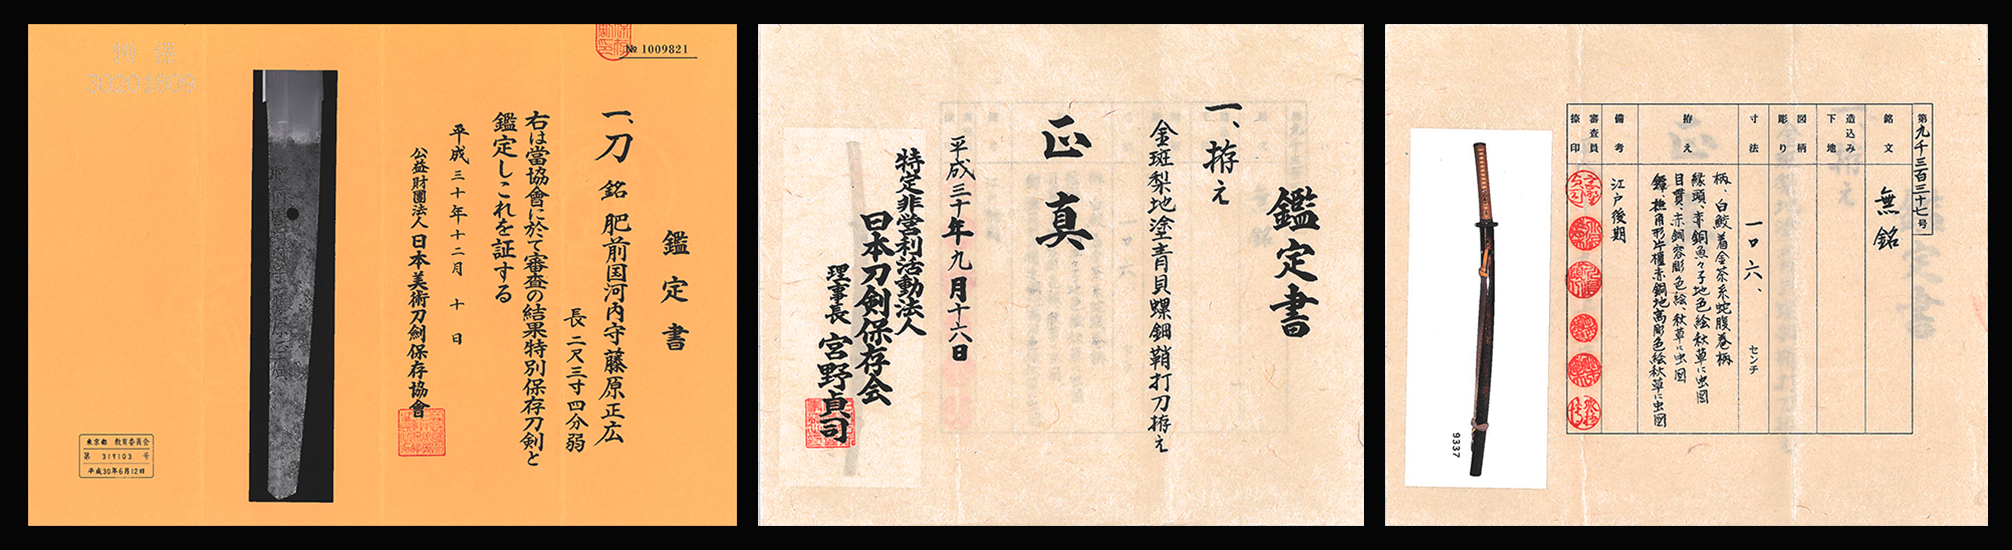 № 1009821
鑑定書
一、刀 銘 肥前国河内守藤原正広
長 二尺三寸四分弱
右は當協會に於て審査の結果特別保存刀剣と
鑑定しこれを証する
平成三十年十二月 十 日
公益財團法人 日本美術刀劍保存協會
東京都 教育委員会
第 319103 号
平成30年6月12日
鑑定書
一、拵え
金斑梨地塗青貝螺鈿鞘打刀拵え
正真
平成三十年九月十六日
特定非営利活動法人
日本刀剣保存会
理事長 宮野貞司
第九千三百三十七号
銘文 無銘
造込み
下地
図柄
彫り
寸法 一〇六、 センチ
拵え 柄、白鮫着金茶糸蛇腹巻柄
縁頭、赤銅魚々子地色絵秋草に虫図
目貫、赤銅容彫色絵、秋草に虫図
鐔、撫角形片櫃赤銅地高彫色絵秋草に虫図
備考 江戸後期
審査員
捺印
9337